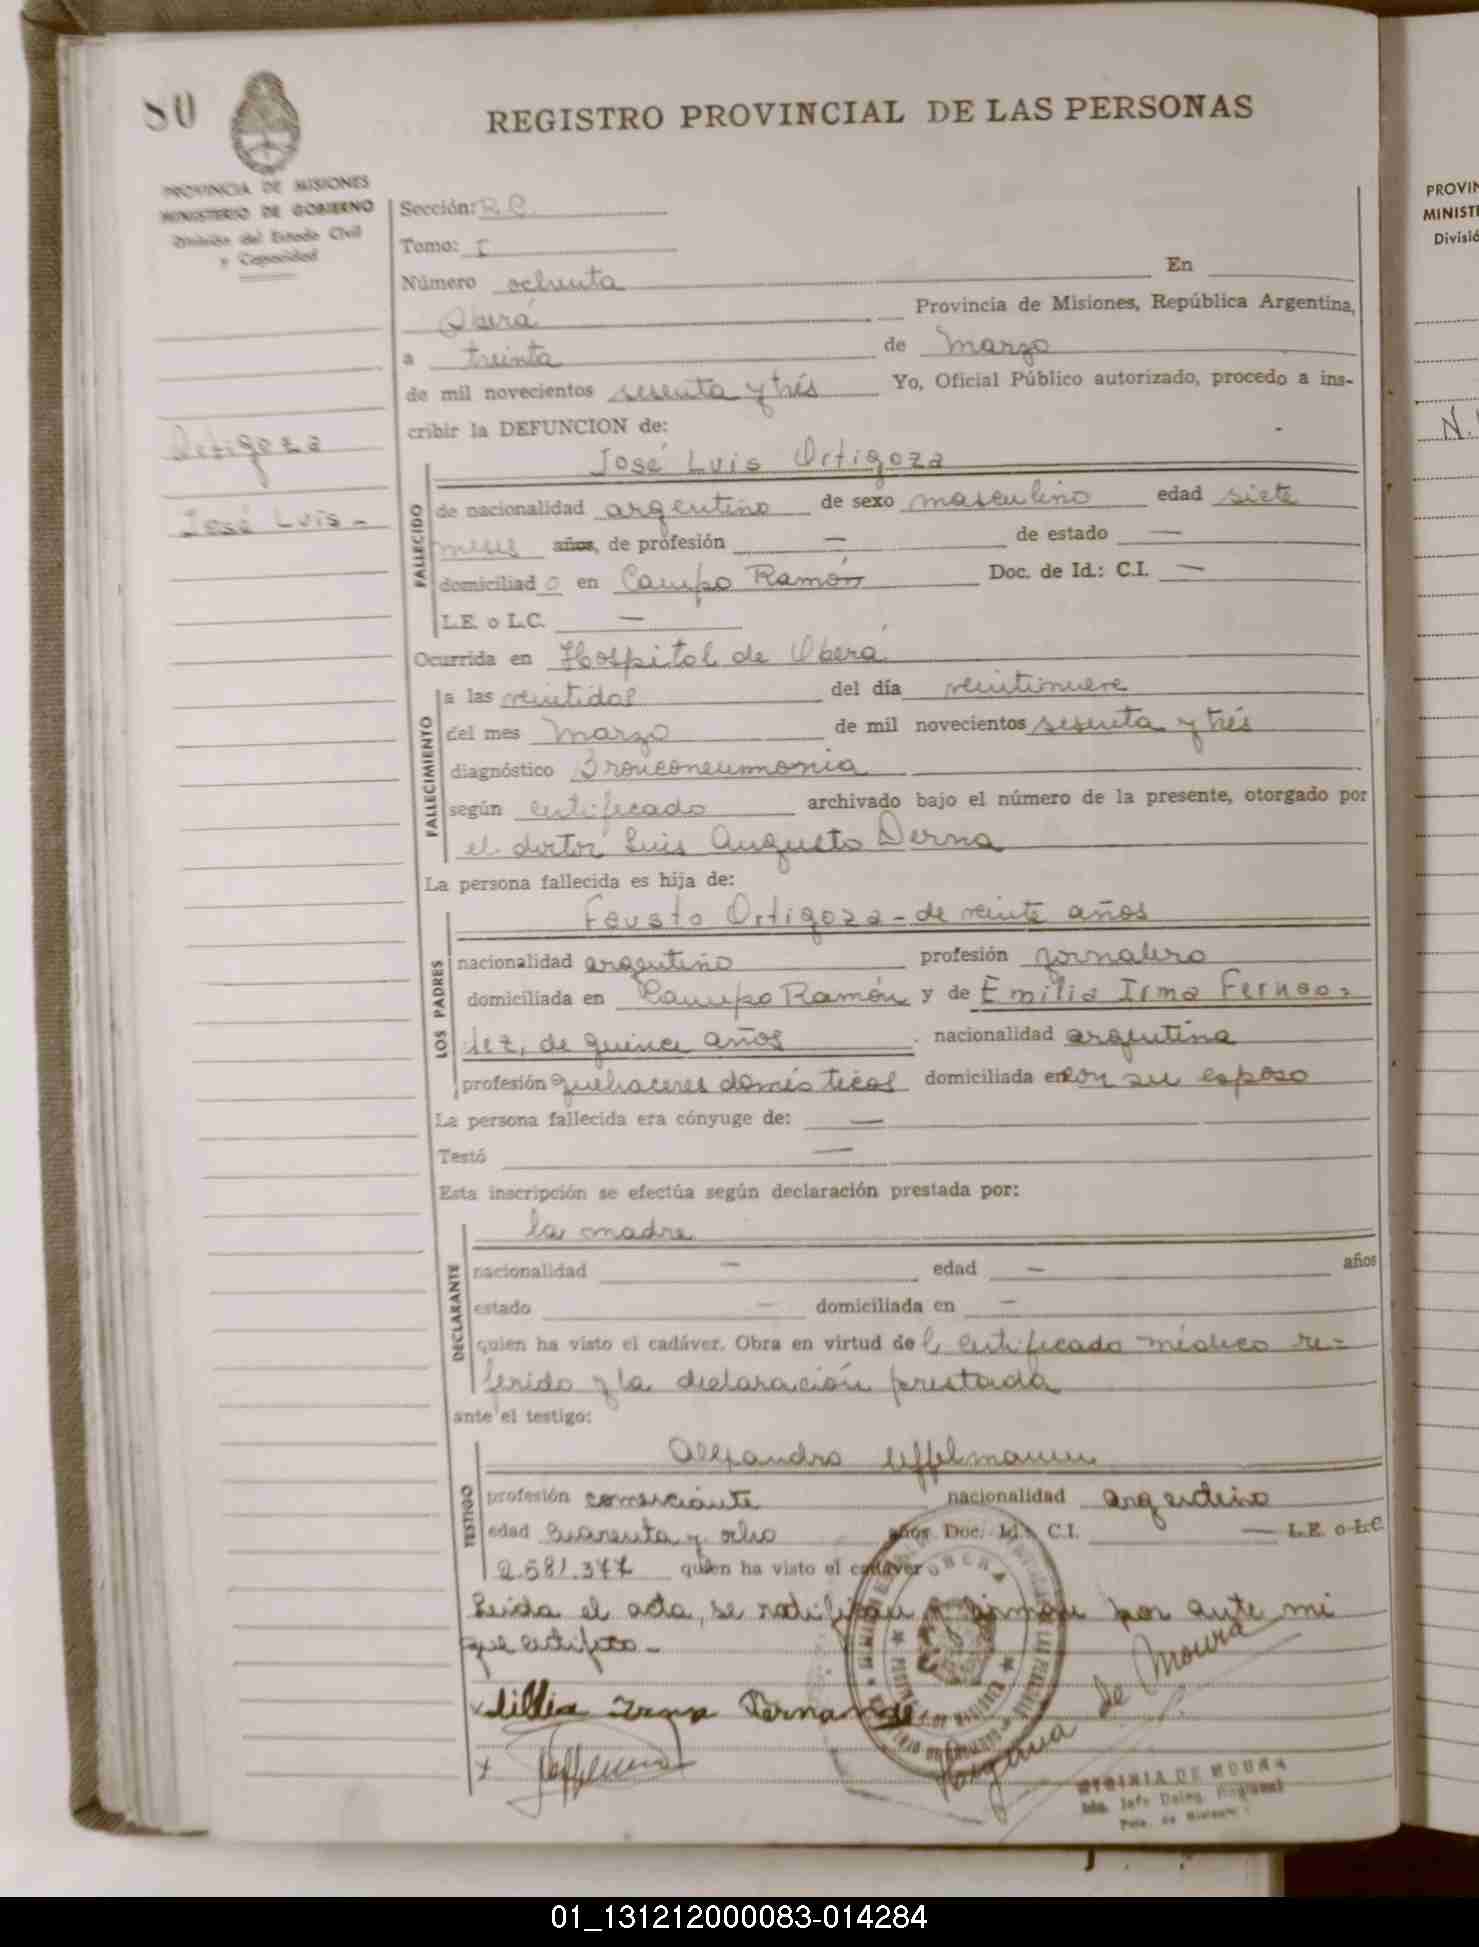 80
REGISTRO PROVINCIAL DE LAS PERSONAS
PROVINCIA DE MISIONES
MINISTERIO DE GOBIERNO
División del Estado Civil
y Capacidad
Sección: R.C.
Tomo: I
Número ochenta En
Oberá Provincia de Misiones, República Argentina,
a treinta de marzo
de mil novecientos sesenta y trés Yo, Oficial Público autorizado, procedo a ins-
cribir la DEFUNCION de:
Ortigoza
José Luis -
José Luis Ortigoza
FALLECIDO
de nacionalidad argentino de sexo masculino edad siete
meses años, de profesión — de estado —
domiciliado en Campo Ramón Doc. de Id.: C.I. —
L.E. o L.C. —
Ocurrida en Hospital de Oberá
FALLECIMIENTO
a las veintidos del día veintinueve
del mes marzo de mil novecientos sesenta y trés
diagnóstico Bronconeumonia
según certificado archivado bajo el número de la presente, otorgado por
el doctor Luis Augusto Derna
La persona fallecida es hija de:
LOS PADRES
Fausto Ortigoza - de veinte años
nacionalidad argentino profesión jornalero
domiciliada en Campo Ramón y de Emilia Irma Fernan-
dez, de quince años nacionalidad argentina
profesión quehaceres domésticos domiciliada en con su esposo
La persona fallecida era cónyuge de: —
Testó —
Esta inscripción se efectúa según declaración prestada por:
DECLARANTE
la madre
nacionalidad — edad — años
estado — domiciliada en —
quien ha visto el cadáver. Obra en virtud del certificado médico re-
ferido y la declaración prestada
ante el testigo:
TESTIGO
Alejandro
profesión comerciante nacionalidad argentino
edad cuarenta y ocho años Doc. Id.: C.I. — L.E. o L.C.
2.581.377 quien ha visto el cadáver
Leida el acta, se ratifican y firman por ante mi
que certifico -
Irma Fernandez
OBERA
de Moura
HIGINIA DE MOURA
PROVIN
MINISTE
Divisió
N.
01_131212000083-014284